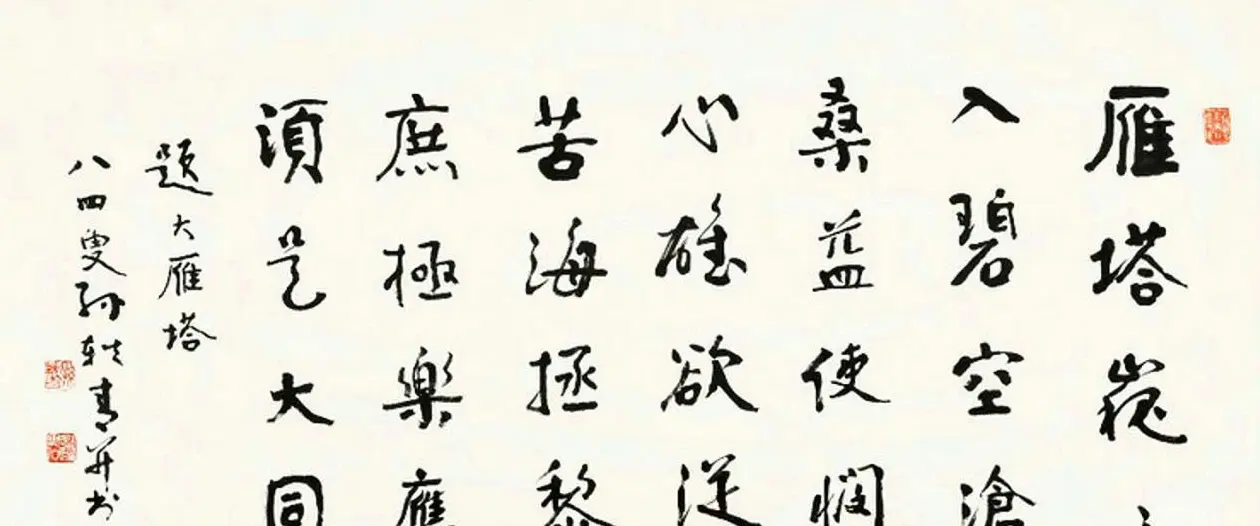 雁塔巍
入碧空滄
桑益使憫
心雄欲從
苦海拯黎
庶極樂應
須是大同
題大雁塔
八四叟孫軼青並書